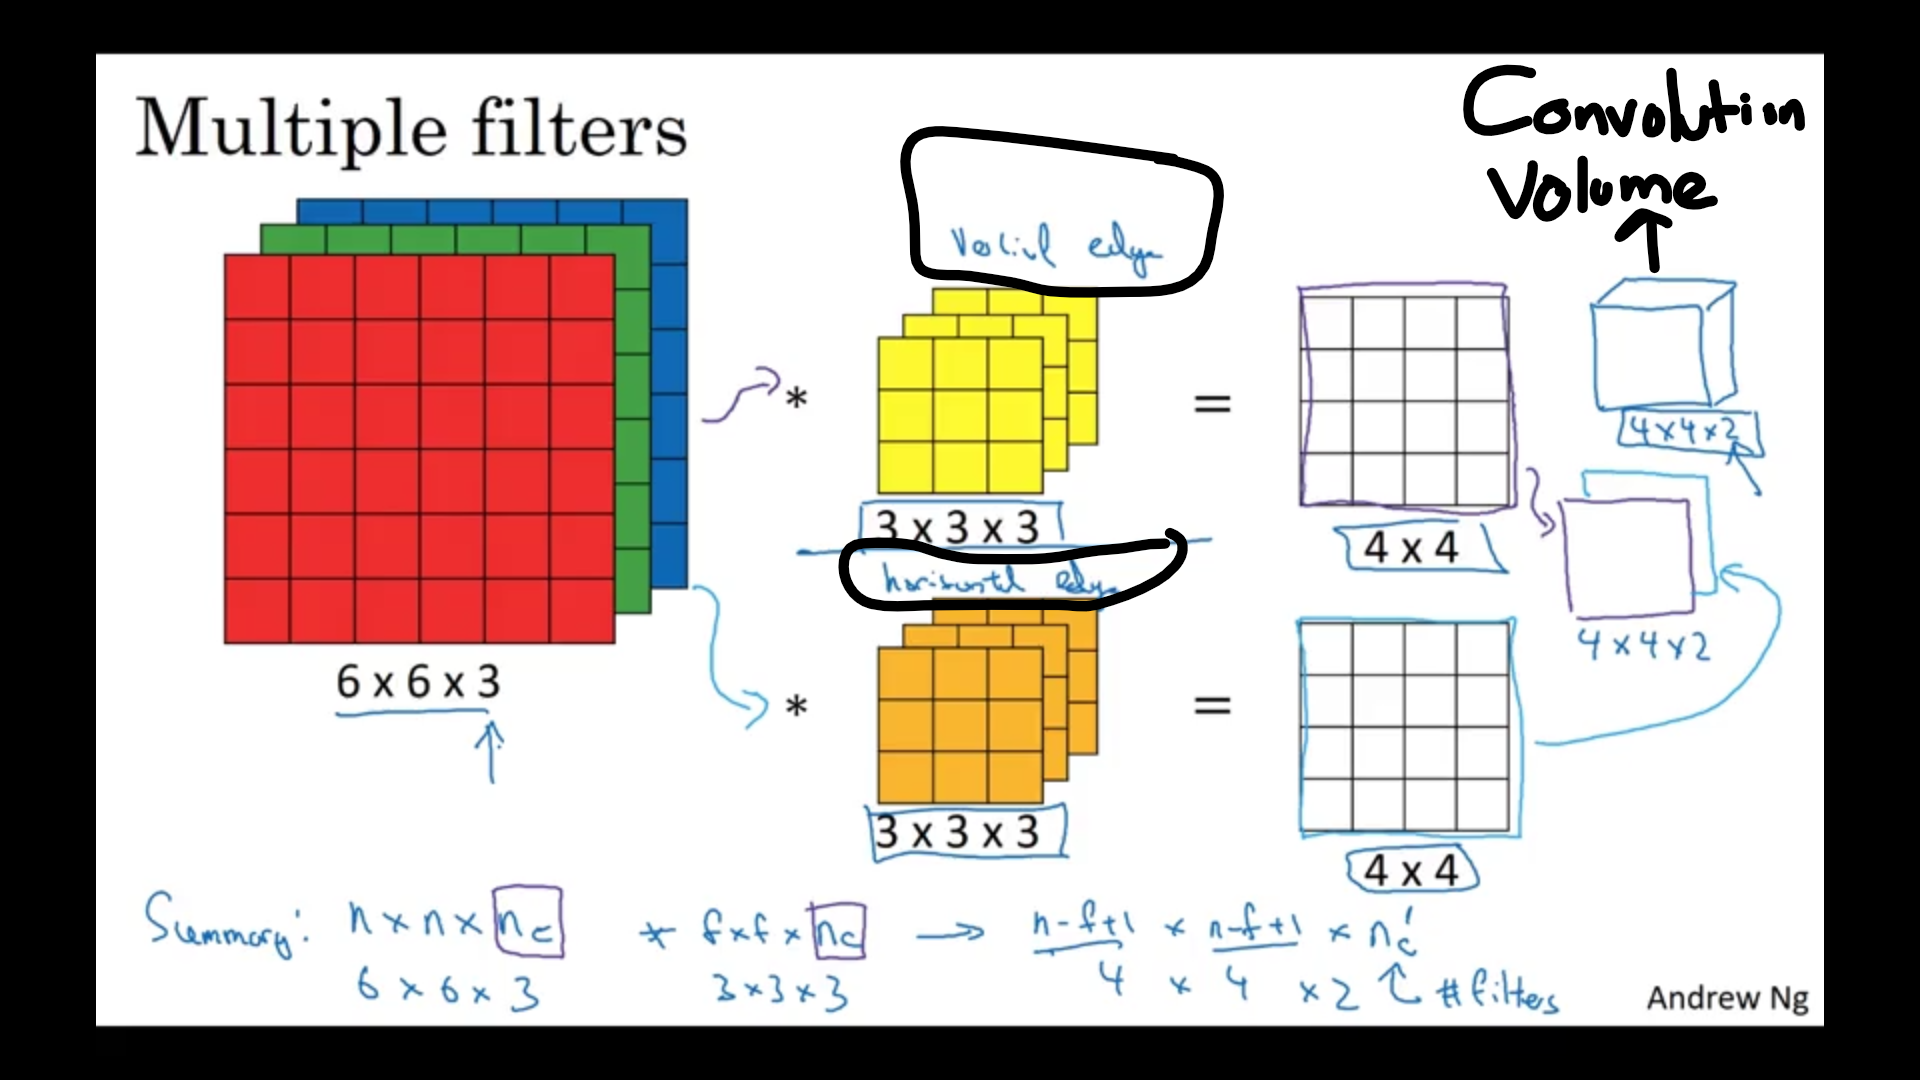 Multiple filters
Convolution
Volume
edge
*
=
4x4x2
3 x 3 x 3
4 x 4
horizontal edge
4x4x2
6 x 6 x 3
*
=
3 x 3 x 3
4 x 4
Summary: n x n x nc * f x f x nc → n-f+1 x n-f+1 x nc'
6 x 6 x 3 3 x 3 x 3 4 x 4 x 2 #filters
Andrew Ng